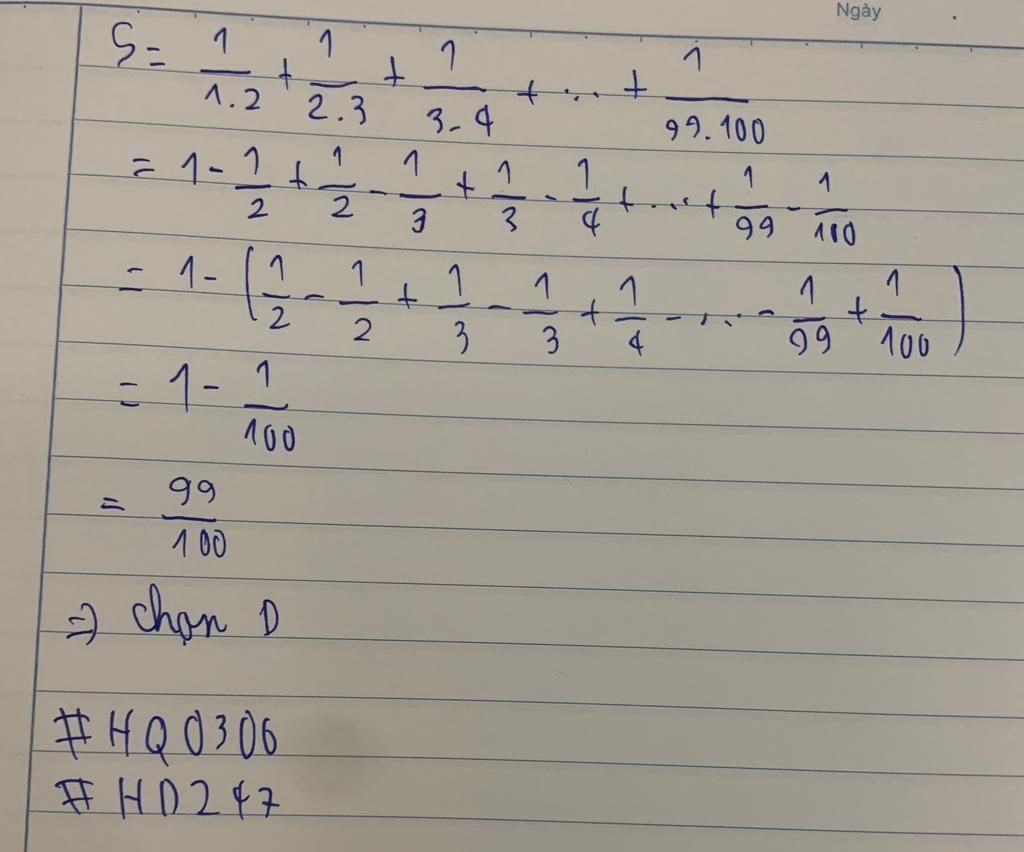 Ngày
S = 1/1.2 + 1/2.3 + 1/3.4 + ... + 1/99.100
= 1 - 1/2 + 1/2 - 1/3 + 1/3 - 1/4 + ... + 1/99 - 1/100
= 1 - (1/2 - 1/2 + 1/3 - 1/3 + 1/4 - ... - 1/99 + 1/100)
= 1 - 1/100
= 99/100
=> chọn D
#HQ0306
#HD247